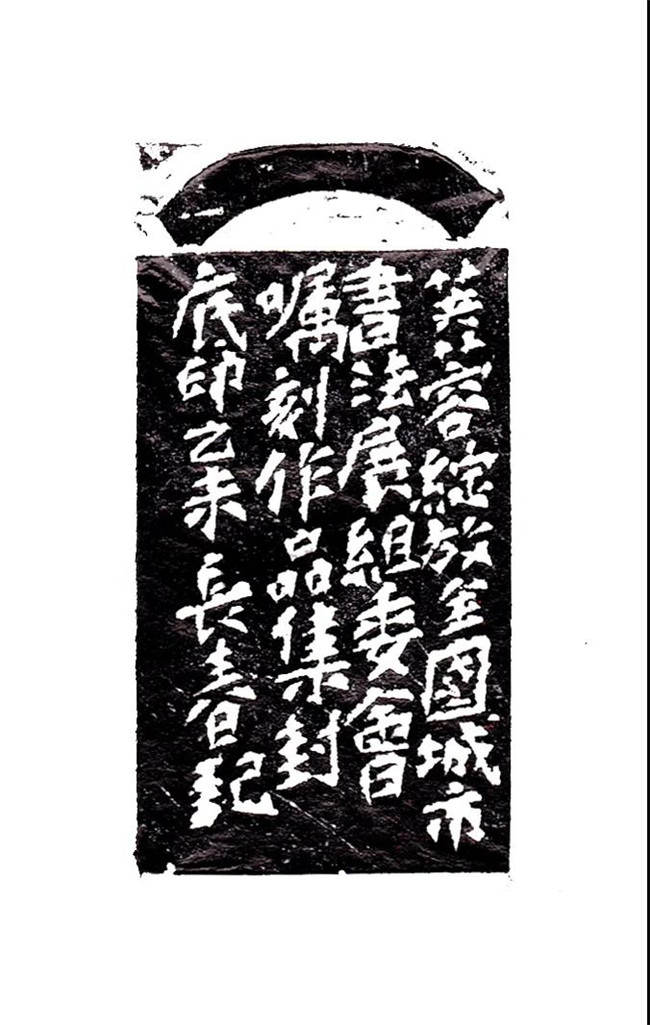 芙蓉綻放全國城市
書法展組委會
囑刻作品集封
底印乙未長春記